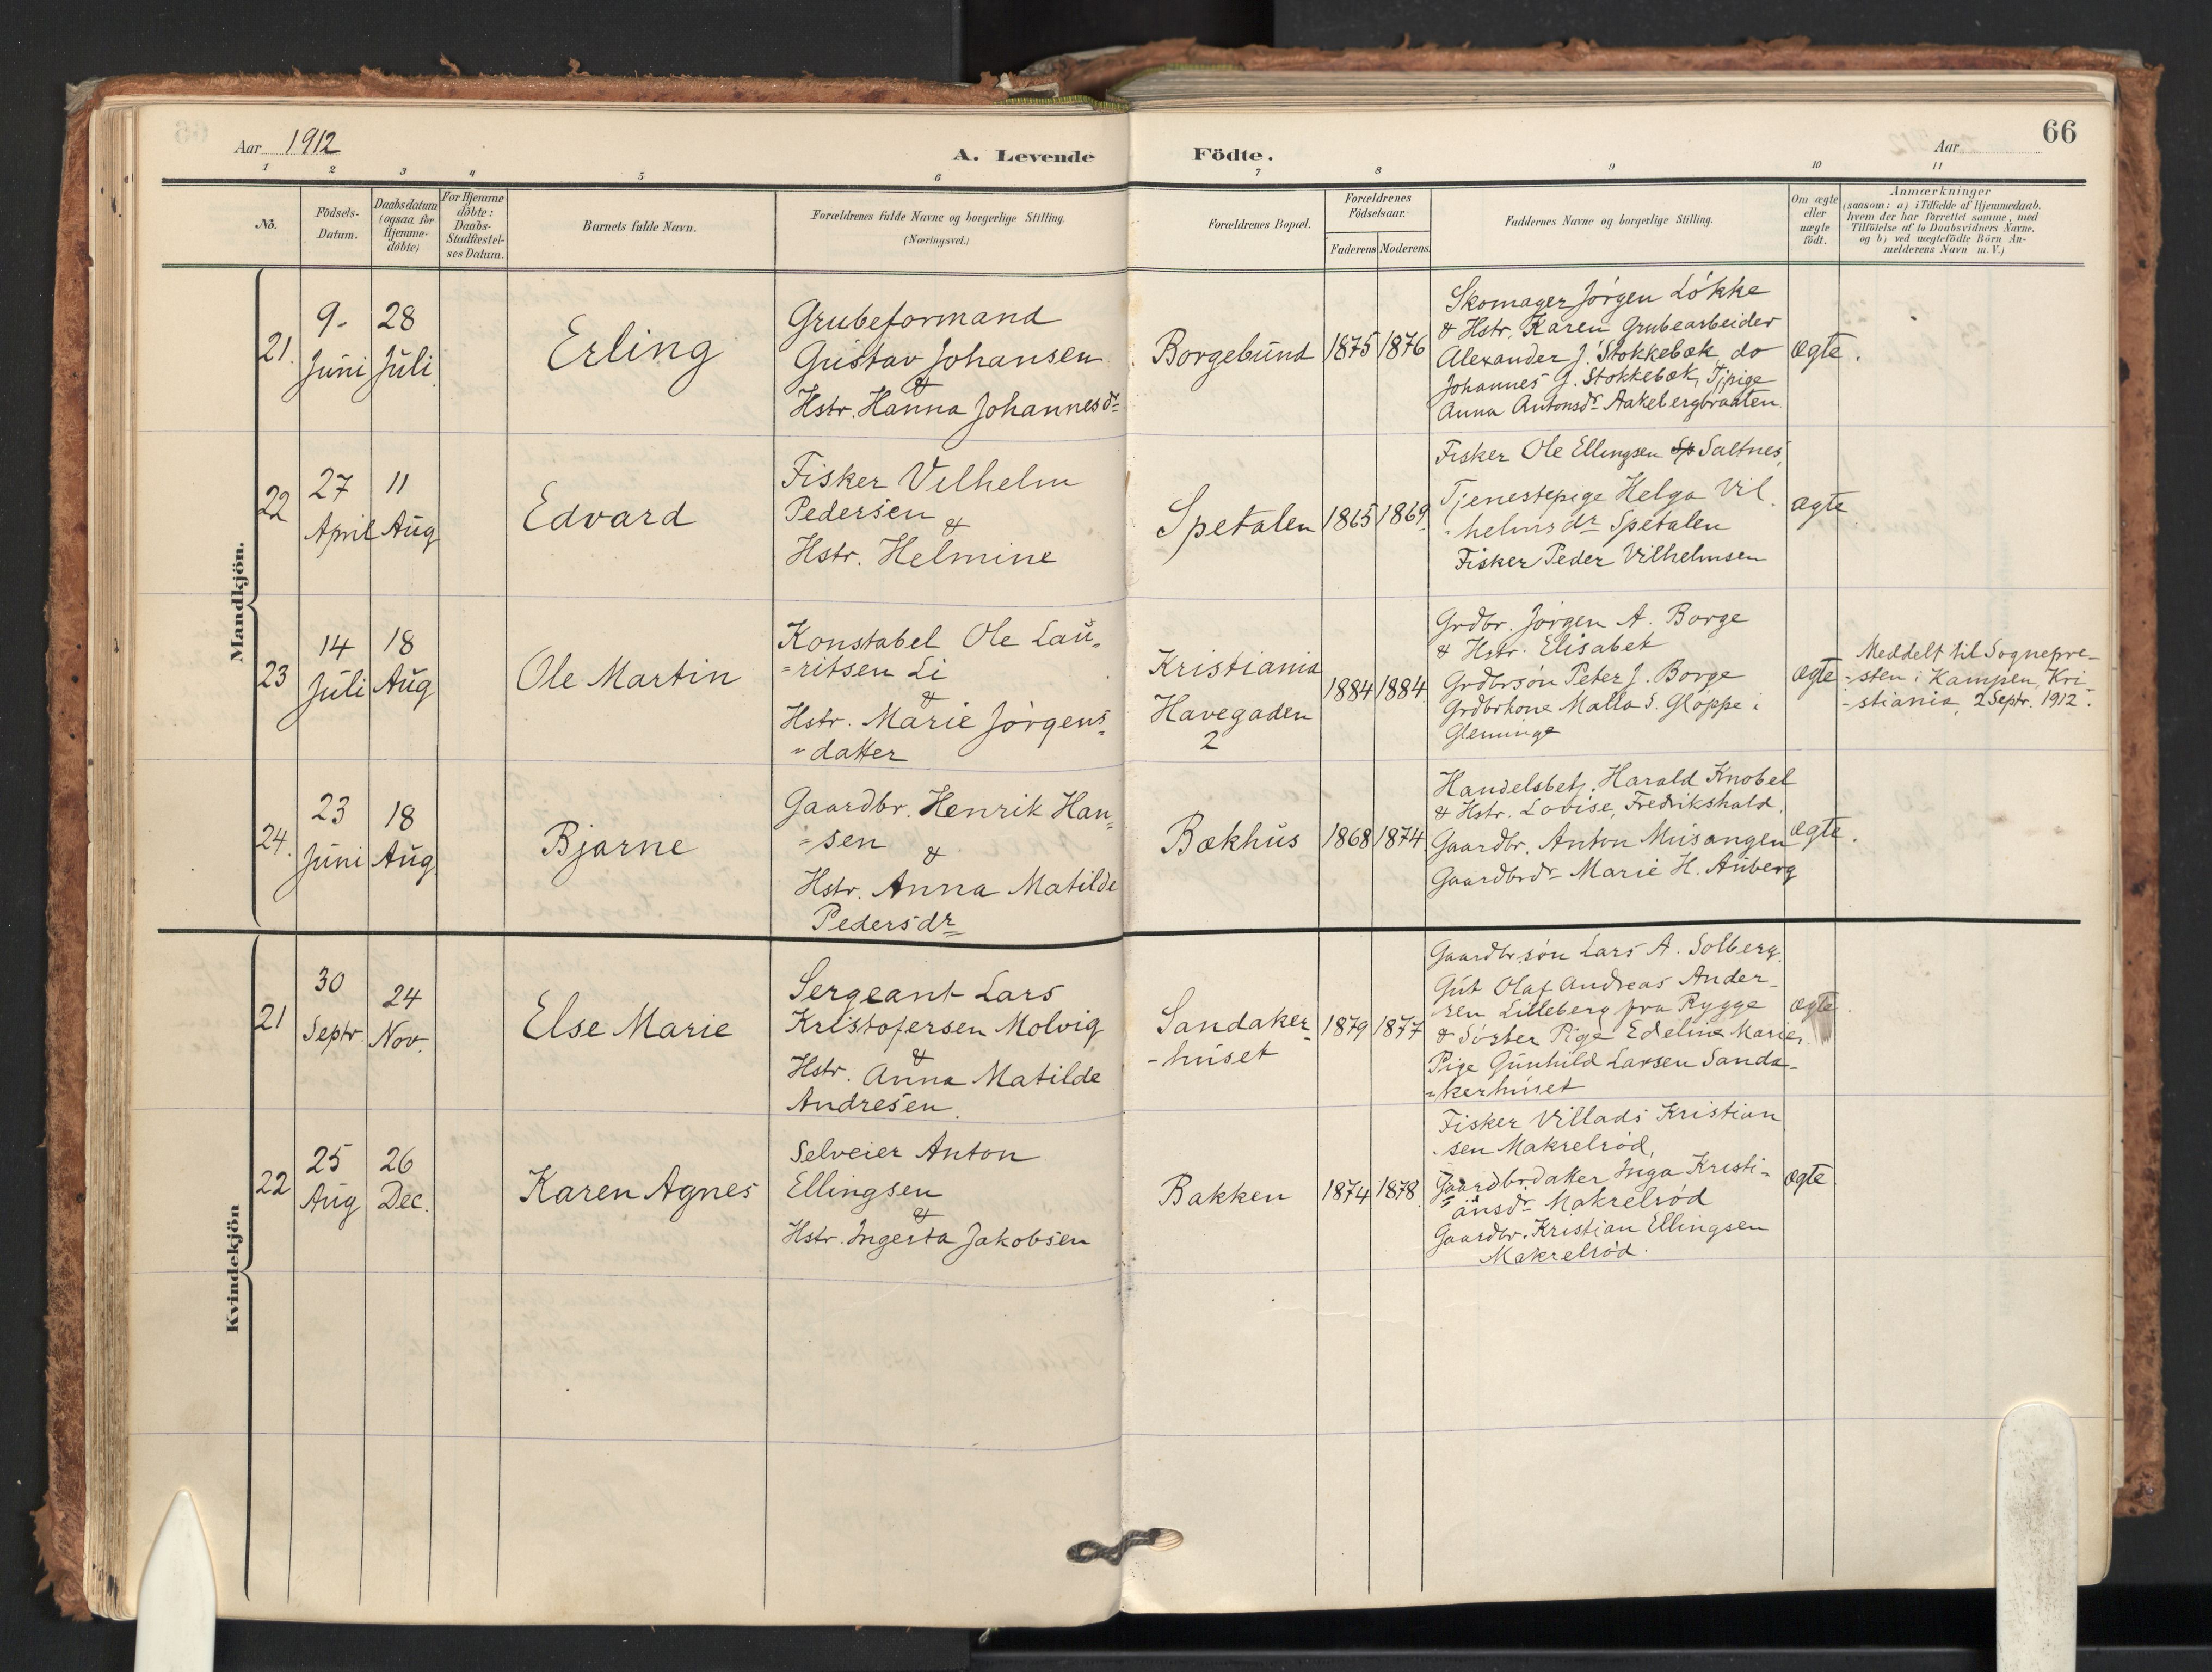 Aar 1912
A. Levende Födte.
Aar
66
1 2 3 4 5 6 7 8 9 10 11
No.
Födsels-
Datum.
Daabsdatum
(ogsaa for
Hjemme-
döbte)
For Hjemme
döbte:
Daabs-
Stadfæstel-
ses Datum.
Barnets fulde Navn.
Forældrenes fulde Navne og borgerlige Stilling.
(Næringsvei.)
Forældrenes Bopæl.
Forældrenes
Födselsaar.
Faderens Moderens
Faddernes Navne og borgerlige Stilling.
Om ægte
eller
uægte
födt.
Anmærkninger
(saasom: a) i Tilfælde af Hjemmedaab.
hvem der har forrettet samme, med
Tilföielse af to Daabsvidners Navne.
og b) ved uægtefödte Börn An-
melderens Navn m.V.)
Mandkjön.
21.
9.
Juni
28
Juli
Erling
Grubeformand
Gustav Johansen
&
Hstr. Hanna Johannesdr
Borgebund
1875
1876
Skomager Jörgen Lökke
& Hstr. Karen Grubearbeider
Alexander J. Stokkebæk, do
Johannes J. Stokkebæk, Tjpige
Anna Antonsdr Aakebergbraaten
ægte.
22
27
April
11
Aug
Edvard
Fisker Vilhelm
Pedersen
&
Hstr. Helmine
Spetalen
1865
1869
Fisker Ole Ellingsen Sp Saltnes,
Tjenestepige Helga Vil
helmsdr Spetalen
Fisker Peder Vilhelmsen
ægte
23
14
Juli
18
Aug
Ole Martin
Konstabel Ole Lau-
=ritsen Li
&
Hstr. Marie Jörgens=
=datter
Kristiania
Havegaden
2
1884
1884
Grdbr. Jörgen A. Borge
& Hstr. Elisabet
Grdbrsön Peter J. Borge
Grdbrkone Malla S. Gloppe i
Glemminge
ægte
Meddelt til Sognepre-
-sten i Kampen, Kri-
-stiania, 2 Septr. 1912.
24.
23
Juni
18
Aug
Bjarne
Gaardbr. Henrik Han=
=sen
&
Hstr. Anna Matilde
Pedersdr
Bækhus
1868
1874
Handelsbetj. Harald Knobel
& Hstr. Lovise, Fredrikshald.
Gaardbr. Anton Musangen
Gaardbrdr Marie H. Auberg
ægte.
Kvindekjön
21
30
Septr.
24
Nov.
Else Marie
Sergeant Lars
Kristofersen Molvig
&
Hstr. Anna Matilde
Andresen.
Sandaker-
-huset
1879
1877
Gaardbr.sön Lars A. Solberg.
Gut Olaf Andreas Ander-
sen Lilleberg fra Rygge
& Söster Pige Edeline Marie,
Pige Gunhild Larsen Sanda-
-kerhuset
ægte.
22
25
Aug
26
Dec.
Karen Agnes
Selveier Anton
Ellingsen
&
Hstr. Ingerta Jakobsen
Bakken
1874
1878
Fisker Villads Kristian
sen Makrelröd,
Gaardbrdatter Inga Kristi-
=ansdr Makrelröd
Gaardbr. Kristian Ellingsen
Makrelröd.
ægte